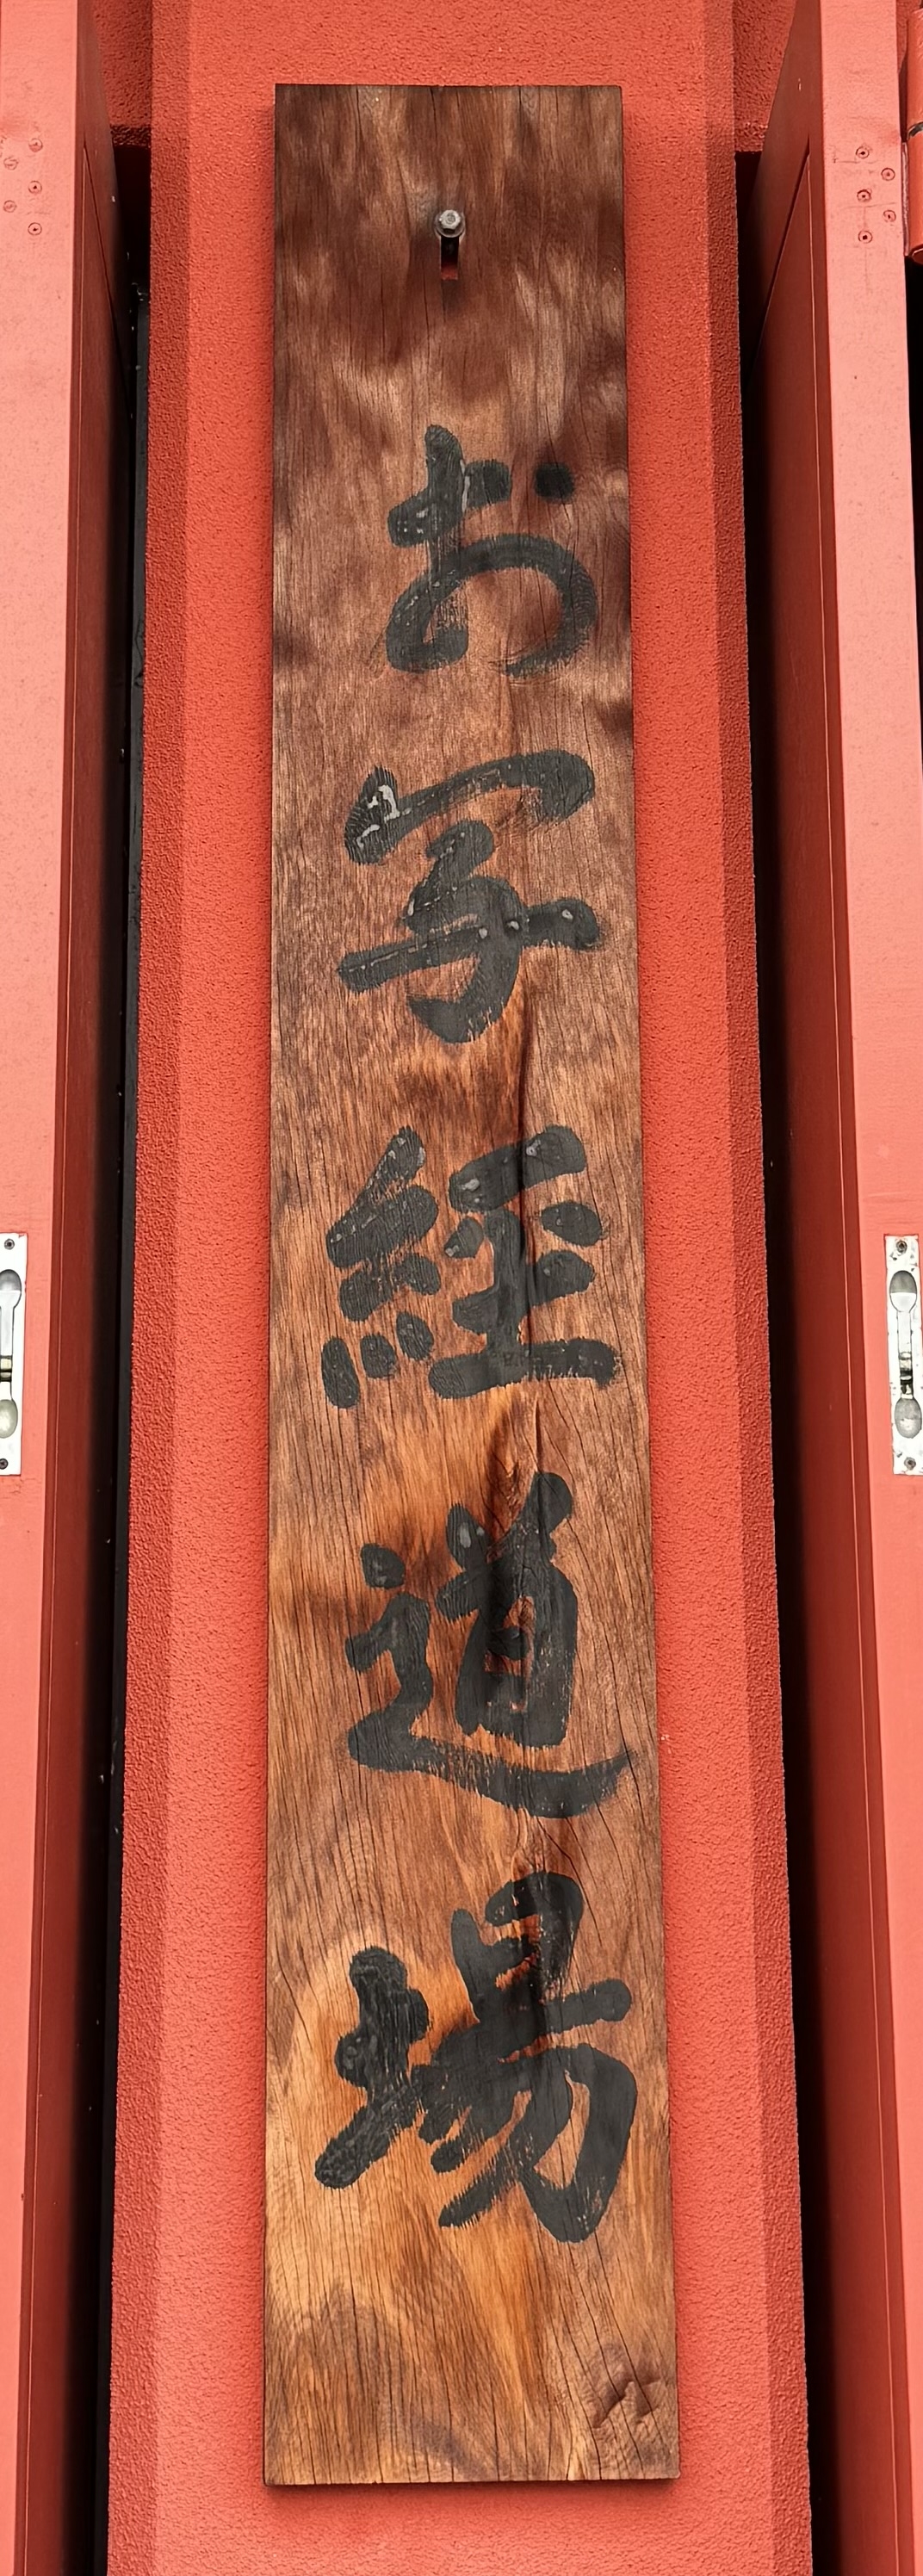 お写経道場